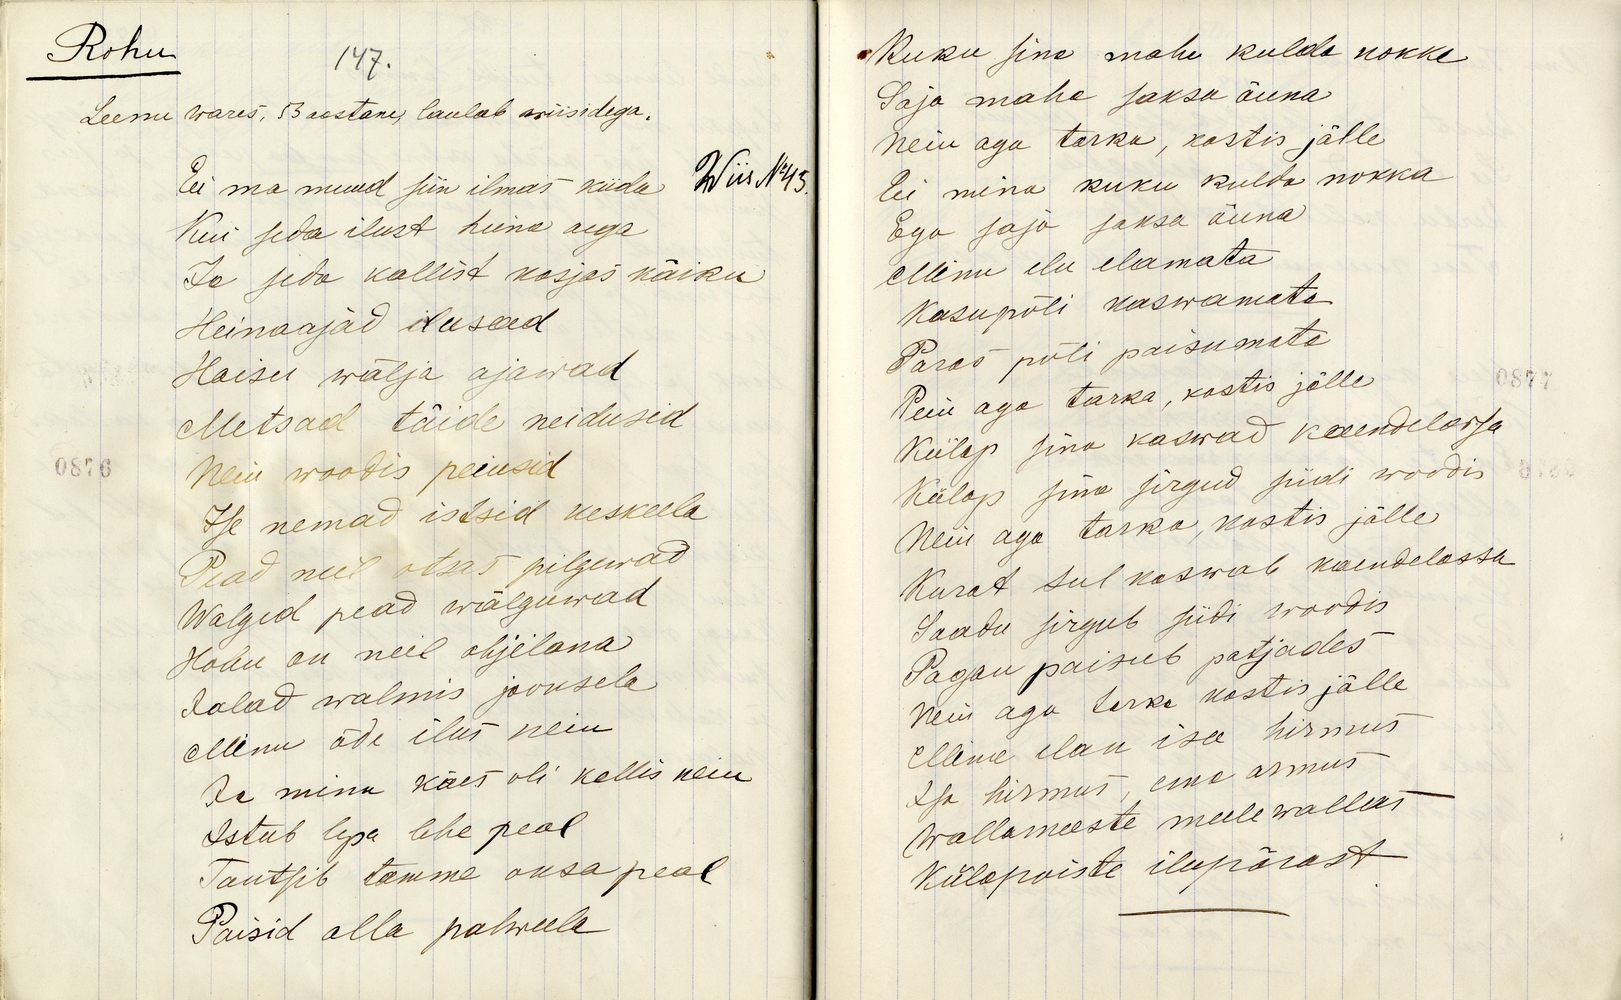 Rohu
147.
Leenu wares, 53 aastane, laulab wiisidega.
Wiis № 43.
Ei ma muud siin ilmas kiida
Kui seda ilust heina aega
Ja seda kallist kosjas käiku
Heinaajad ilusad
Haisu wälja ajawad
Metsad täide neidusid
Neiu woodis peiusid
Ise nemad istsid keskeela
Pead neil otsas pilguwad
Walged pead wälguwad
Hobu on neil ohjelana
Jalad walmis jooksela
Minu õde ilus neiu
Ja minu käes oli kallis neiu
Istub lepa lehe peal
Tantsib tamme oksa peal
Poisid alla pahweela
Kuku sina maha kulda nokka
Saja maha saksa õuna
Neiu aga tarka, kostis jälle
Ei mina kuku kulda nokka
Ega saja saksa õuna
Minu elu elamata
Kasupõli kaswamata
Paras põli paisumata
Peiu aga tarka, kostis jälle
Külap sina kaswad kaendelassa
Külap sina sirgud siidi woodis
Neiu aga tarka, kostis jälle
Kurat sul kaswab kaendelassa
Saadu sirgub siidi woodis
Pagan paisub patjades
Neiu aga tarka kostis jälle
Mina elan isa hirmus
Isa hirmus, ema armus
Wallameeste meelewallas
Külapoiste ilupärast
0876
0877